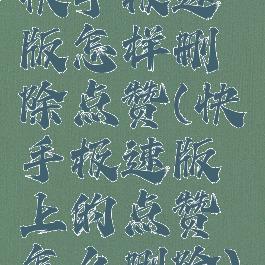 极速
版怎样删
除点赞(快
手极速版
上的点赞
删除)